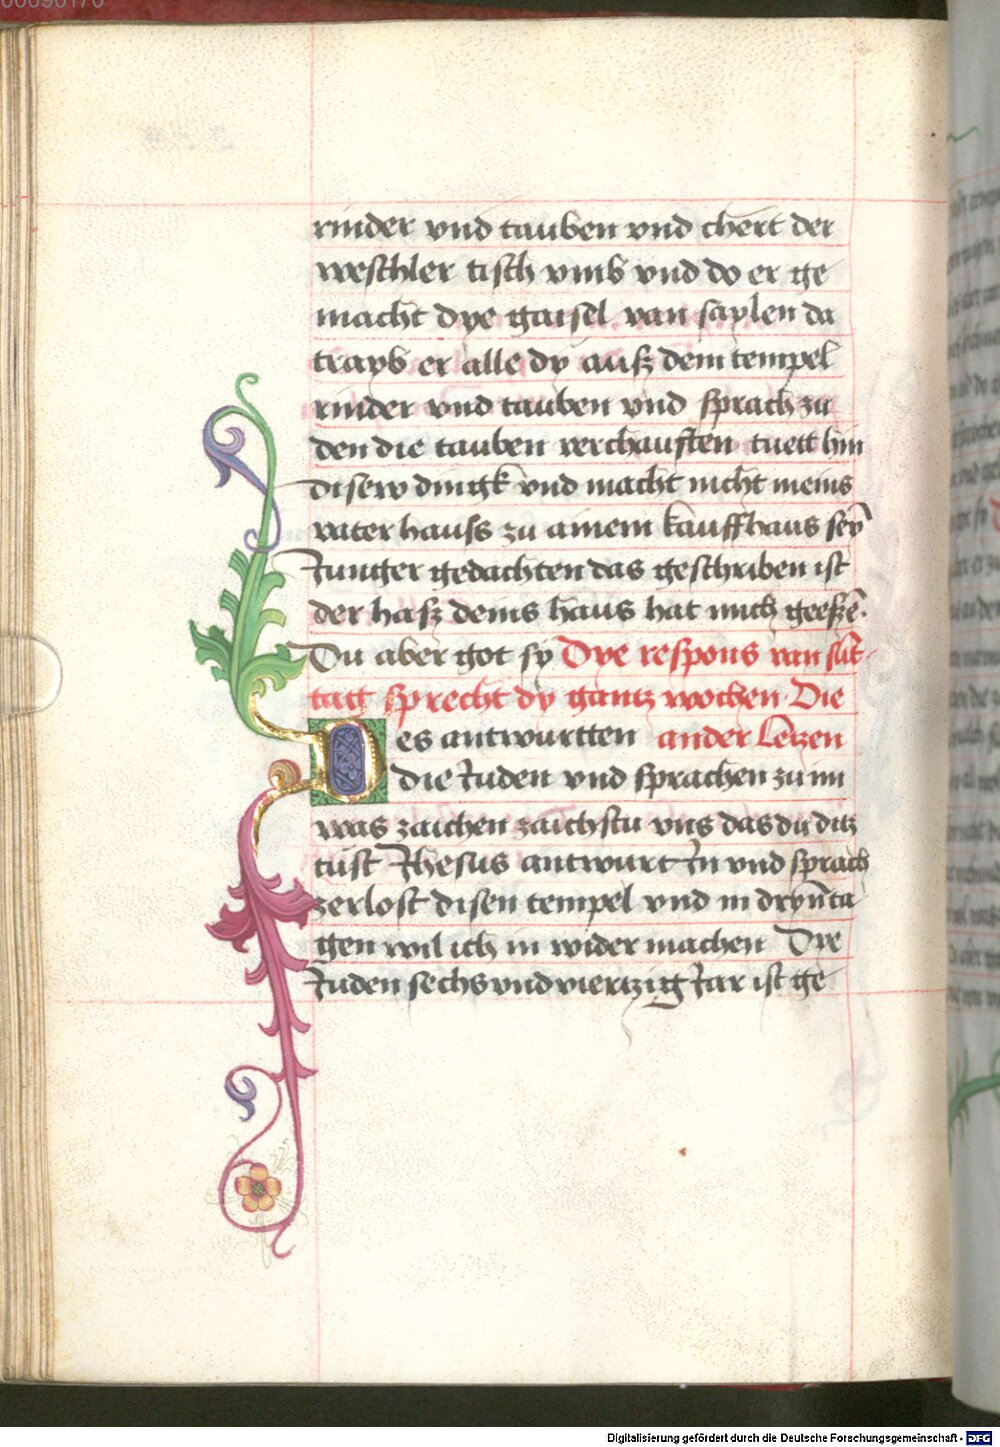 rinder vnd tauben vnd chert der
weschler tisch vmb vnd do er ge
macht dye gaisel van saylen da
trayb er alle dy ausz dem tempel
rinder vnd tauben vnd sprach zu
den die tauben verchauften tuett hin
disew dingk vnd macht nicht meins
vater hauss zu ainem kauffhaus seÿ
Junger gedachten das geschriben ist
der hasz deins haus hat mich geeszē.
Du aber got sy Dye respons van sūt
tag sprecht dy gantz wochen. Die
es antwurtten ander Letzen
D die Juden vnd sprachen zu im
was zaichen zaichstu vns das du ditz
tust Jhesus antwurt Jn vnd sprach
zerlost disen tempel vnd in dryn ta
gen wil ich in wider machen Dye
Juden sechs vnd viertzig Jar ist ge
Digitalisierung gefördert durch die Deutsche Forschungsgemeinschaft - DFG